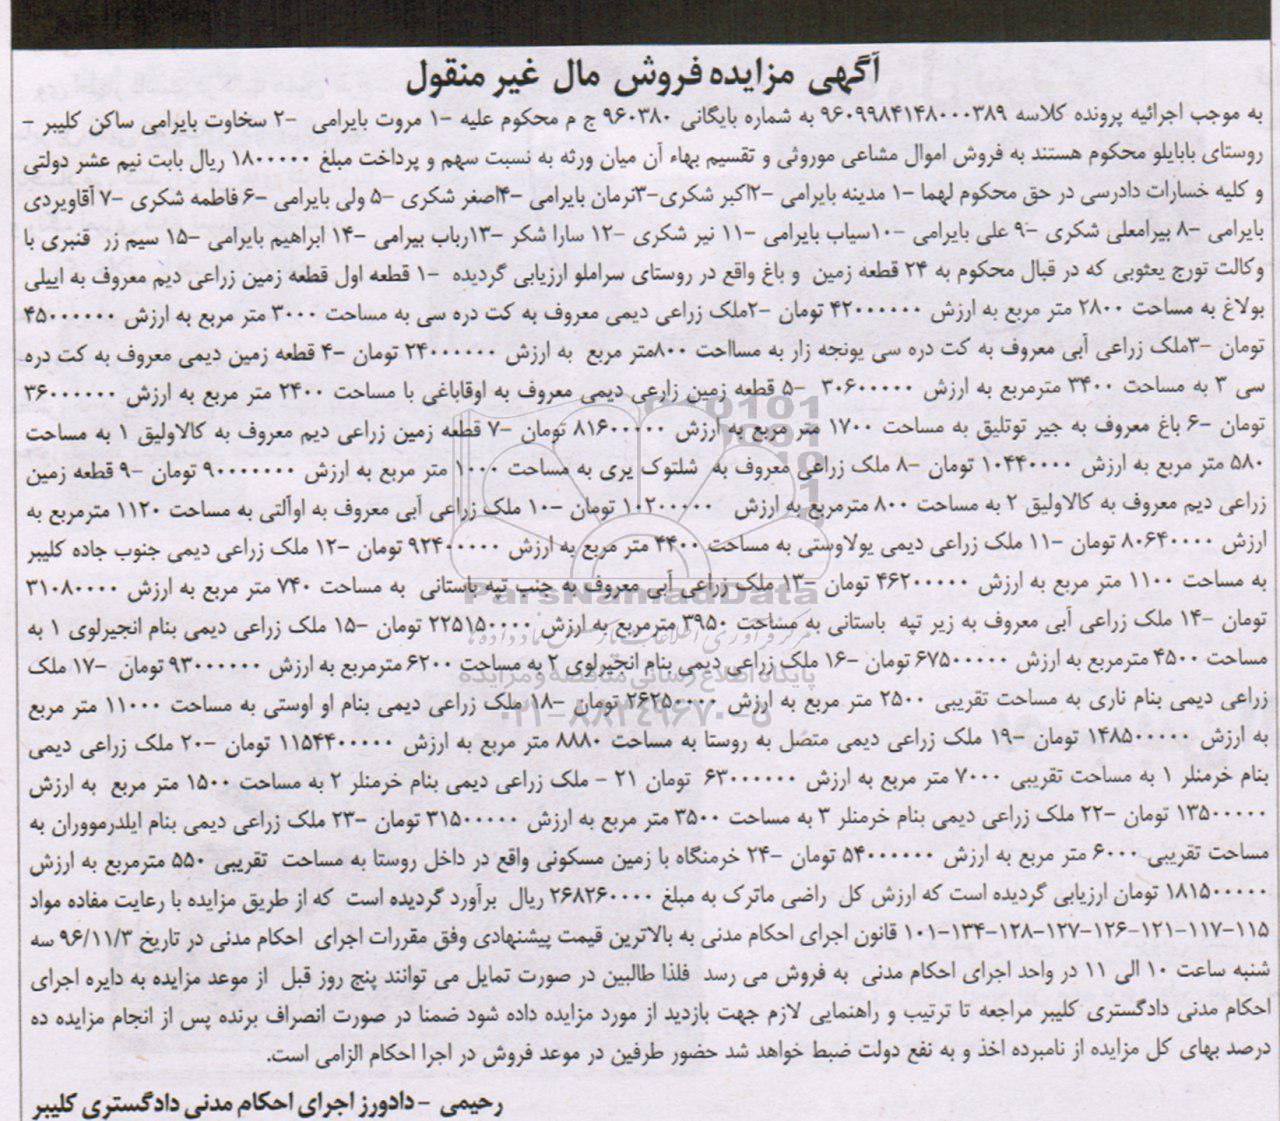 آگهی مزایده فروش مال غیر منقول
به موجب اجرائیه پرونده کلاسه ۹۶۰۹۹۸۴۱۴۸۰۰۰۳۸۹ به شماره بایگانی ۹۶۰۳۸۰ ج م محکوم علیه -۱ مروت بایرامی -۲ سخاوت بایرامی ساکن کلیبر -
روستای بابایلو محکوم هستند به فروش اموال مشاعی موروثی و تقسیم بهاء آن میان ورثه به نسبت سهم و پرداخت مبلغ ۱۸۰۰۰۰۰ ریال بابت نیم عشر دولتی
و کلیه خسارات دادرسی در حق محکوم لهما -۱ مدینه بایرامی -۲اکبر شکری-۳نرمان بایرامی -۴اصغر شکری -۵ ولی بایرامی -۶ فاطمه شکری -۷ آقاویردی
بایرامی -۸ بیرامعلی شکری -۹ علی بایرامی -۱۰سیاب بایرامی -۱۱ نیر شکری -۱۲ سارا شکر -۱۳رباب بیرامی -۱۴ ابراهیم بایرامی -۱۵ سیم زر قنبری با
وکالت تورج یعثوبی که در قبال محکوم به ۲۴ قطعه زمین و باغ واقع در روستای سراملو ارزیابی گردیده -۱ قطعه اول قطعه زمین زراعی دیم معروف به اییلی
بولاغ به مساحت ۲۸۰۰ متر مربع به ارزش ۴۲۰۰۰۰۰۰ تومان -۲ملک زراعی دیمی معروف به کت دره سی به مساحت ۳۰۰۰ متر مربع به ارزش ۴۵۰۰۰۰۰۰
تومان -۳ملک زراعی آبی معروف به کت دره سی یونجه زار به مسااحت ۸۰۰متر مربع به ارزش ۲۴۰۰۰۰۰۰ تومان -۴ قطعه زمین دیمی معروف به کت دره
سی ۳ به مساحت ۳۴۰۰ مترمربع به ارزش ۳۰۶۰۰۰۰۰ -۵ قطعه زمین زارعی دیمی معروف به اوقاباغی با مساحت ۲۴۰۰ متر مربع به ارزش ۳۶۰۰۰۰۰۰
تومان -۶ باغ معروف به جیر توتلیق به مساحت ۱۷۰۰ متر مربع به ارزش ۸۱۶۰۰۰۰۰ تومان -۷ قطعه زمین زراعی دیم معروف به کالاولیق ۱ به مساحت
۵۸۰ متر مربع به ارزش ۱۰۴۴۰۰۰۰ تومان -۸ ملک زراعی معروف به شلتوک یری به مساحت ۱۰۰۰ متر مربع به ارزش ۹۰۰۰۰۰۰۰ تومان -۹ قطعه زمین
زراعی دیم معروف به کالاولیق ۲ به مساحت ۸۰۰ مترمربع به ارزش ۱۰۲۰۰۰۰۰ تومان -۱۰ ملک زراعی آبی معروف به اوآلتی به مساحت ۱۱۲۰ مترمربع به
ارزش ۸۰۶۴۰۰۰۰ تومان -۱۱ ملک زراعی دیمی یولاوستی به مساحت ۴۴۰۰ متر مربع به ارزش ۹۲۴۰۰۰۰۰ تومان -۱۲ ملک زراعی دیمی جنوب جاده کلیبر
به مساحت ۱۱۰۰ متر مربع به ارزش ۴۶۲۰۰۰۰۰ تومان -۱۳ ملک زراعی آبی معروف به جنب تپه باستانی به مساحت ۷۴۰ متر مربع به ارزش ۳۱۰۸۰۰۰۰
تومان -۱۴ ملک زراعی آبی معروف به زیر تپه باستانی به مساحت ۳۹۵۰ مترمربع به ارزش ۲۲۵۱۵۰۰۰۰ تومان -۱۵ ملک زراعی دیمی بنام انجیرلوی ۱ به
مساحت ۴۵۰۰ مترمربع به ارزش ۶۷۵۰۰۰۰۰ تومان -۱۶ ملک زراعی دیمی بنام انجیرلوی ۲ به مساحت ۶۲۰۰ مترمربع به ارزش ۹۳۰۰۰۰۰۰ تومان -۱۷ ملک
زراعی دیمی بنام ناری به مساحت تقریبی ۲۵۰۰ متر مربع به ارزش ۲۶۲۵۰۰۰۰ تومان -۱۸ ملک زراعی دیمی بنام او اوستی به مساحت ۱۱۰۰۰ متر مربع
به ارزش ۱۴۸۵۰۰۰۰۰ تومان -۱۹ ملک زراعی دیمی متصل به روستا به مساحت ۸۸۸۰ متر مربع به ارزش ۱۱۵۴۴۰۰۰۰۰ تومان -۲۰ ملک زراعی دیمی
بنام خرمنلر ۱ به مساحت تقریبی ۷۰۰۰ متر مربع به ارزش ۶۳۰۰۰۰۰۰ تومان ۲۱ - ملک زراعی دیمی بنام خرمنلر ۲ به مساحت ۱۵۰۰ متر مربع به ارزش
۱۳۵۰۰۰۰۰ تومان -۲۲ ملک زراعی دیمی بنام خرمنلر ۳ به مساحت ۳۵۰۰ متر مربع به ارزش ۳۱۵۰۰۰۰۰ تومان -۲۳ ملک زراعی دیمی بنام ایلدرمووران به
مساحت تقریبی ۶۰۰۰ متر مربع به ارزش ۵۴۰۰۰۰۰۰ تومان -۲۴ خرمنگاه با زمین مسکونی واقع در داخل روستا به مساحت تقریبی ۵۵۰ مترمربع به ارزش
۱۸۱۵۰۰۰۰۰ تومان ارزیابی گردیده است که ارزش کل راضی ماترک به مبلغ ۲۶۸۲۶۰۰۰۰ ریال برآورد گردیده است که از طریق مزایده با رعایت مفاده مواد
۱۱۵-۱۱۷-۱۲۱-۱۲۶-۱۲۷-۱۲۸-۱۳۴-۱۰۱ قانون اجرای احکام مدنی به بالاترین قیمت پیشنهادی وفق مقررات اجرای احکام مدنی در تاریخ ۹۶/۱۱/۳ سه
شنبه ساعت ۱۰ الی ۱۱ در واحد اجرای احکام مدنی به فروش می رسد فلذا طالبین در صورت تمایل می توانند پنج روز قبل از موعد مزایده به دایره اجرای
احکام مدنی دادگستری کلیبر مراجعه تا ترتیب و راهنمایی لازم جهت بازدید از مورد مزایده داده شود ضمنا در صورت انصراف برنده پس از انجام مزایده ده
درصد بهای کل مزایده از نامبرده اخذ و به نفع دولت ضبط خواهد شد حضور طرفین در موعد فروش در اجرا احکام الزامی است.
رحیمی - دادورز اجرای احکام مدنی دادگستری کلیبر
ParsNamadData
پایگاه اطلاع رسانی مناقصه و مزایده
۰۲۱-۸۸۳۴۹۶۷۰-۵